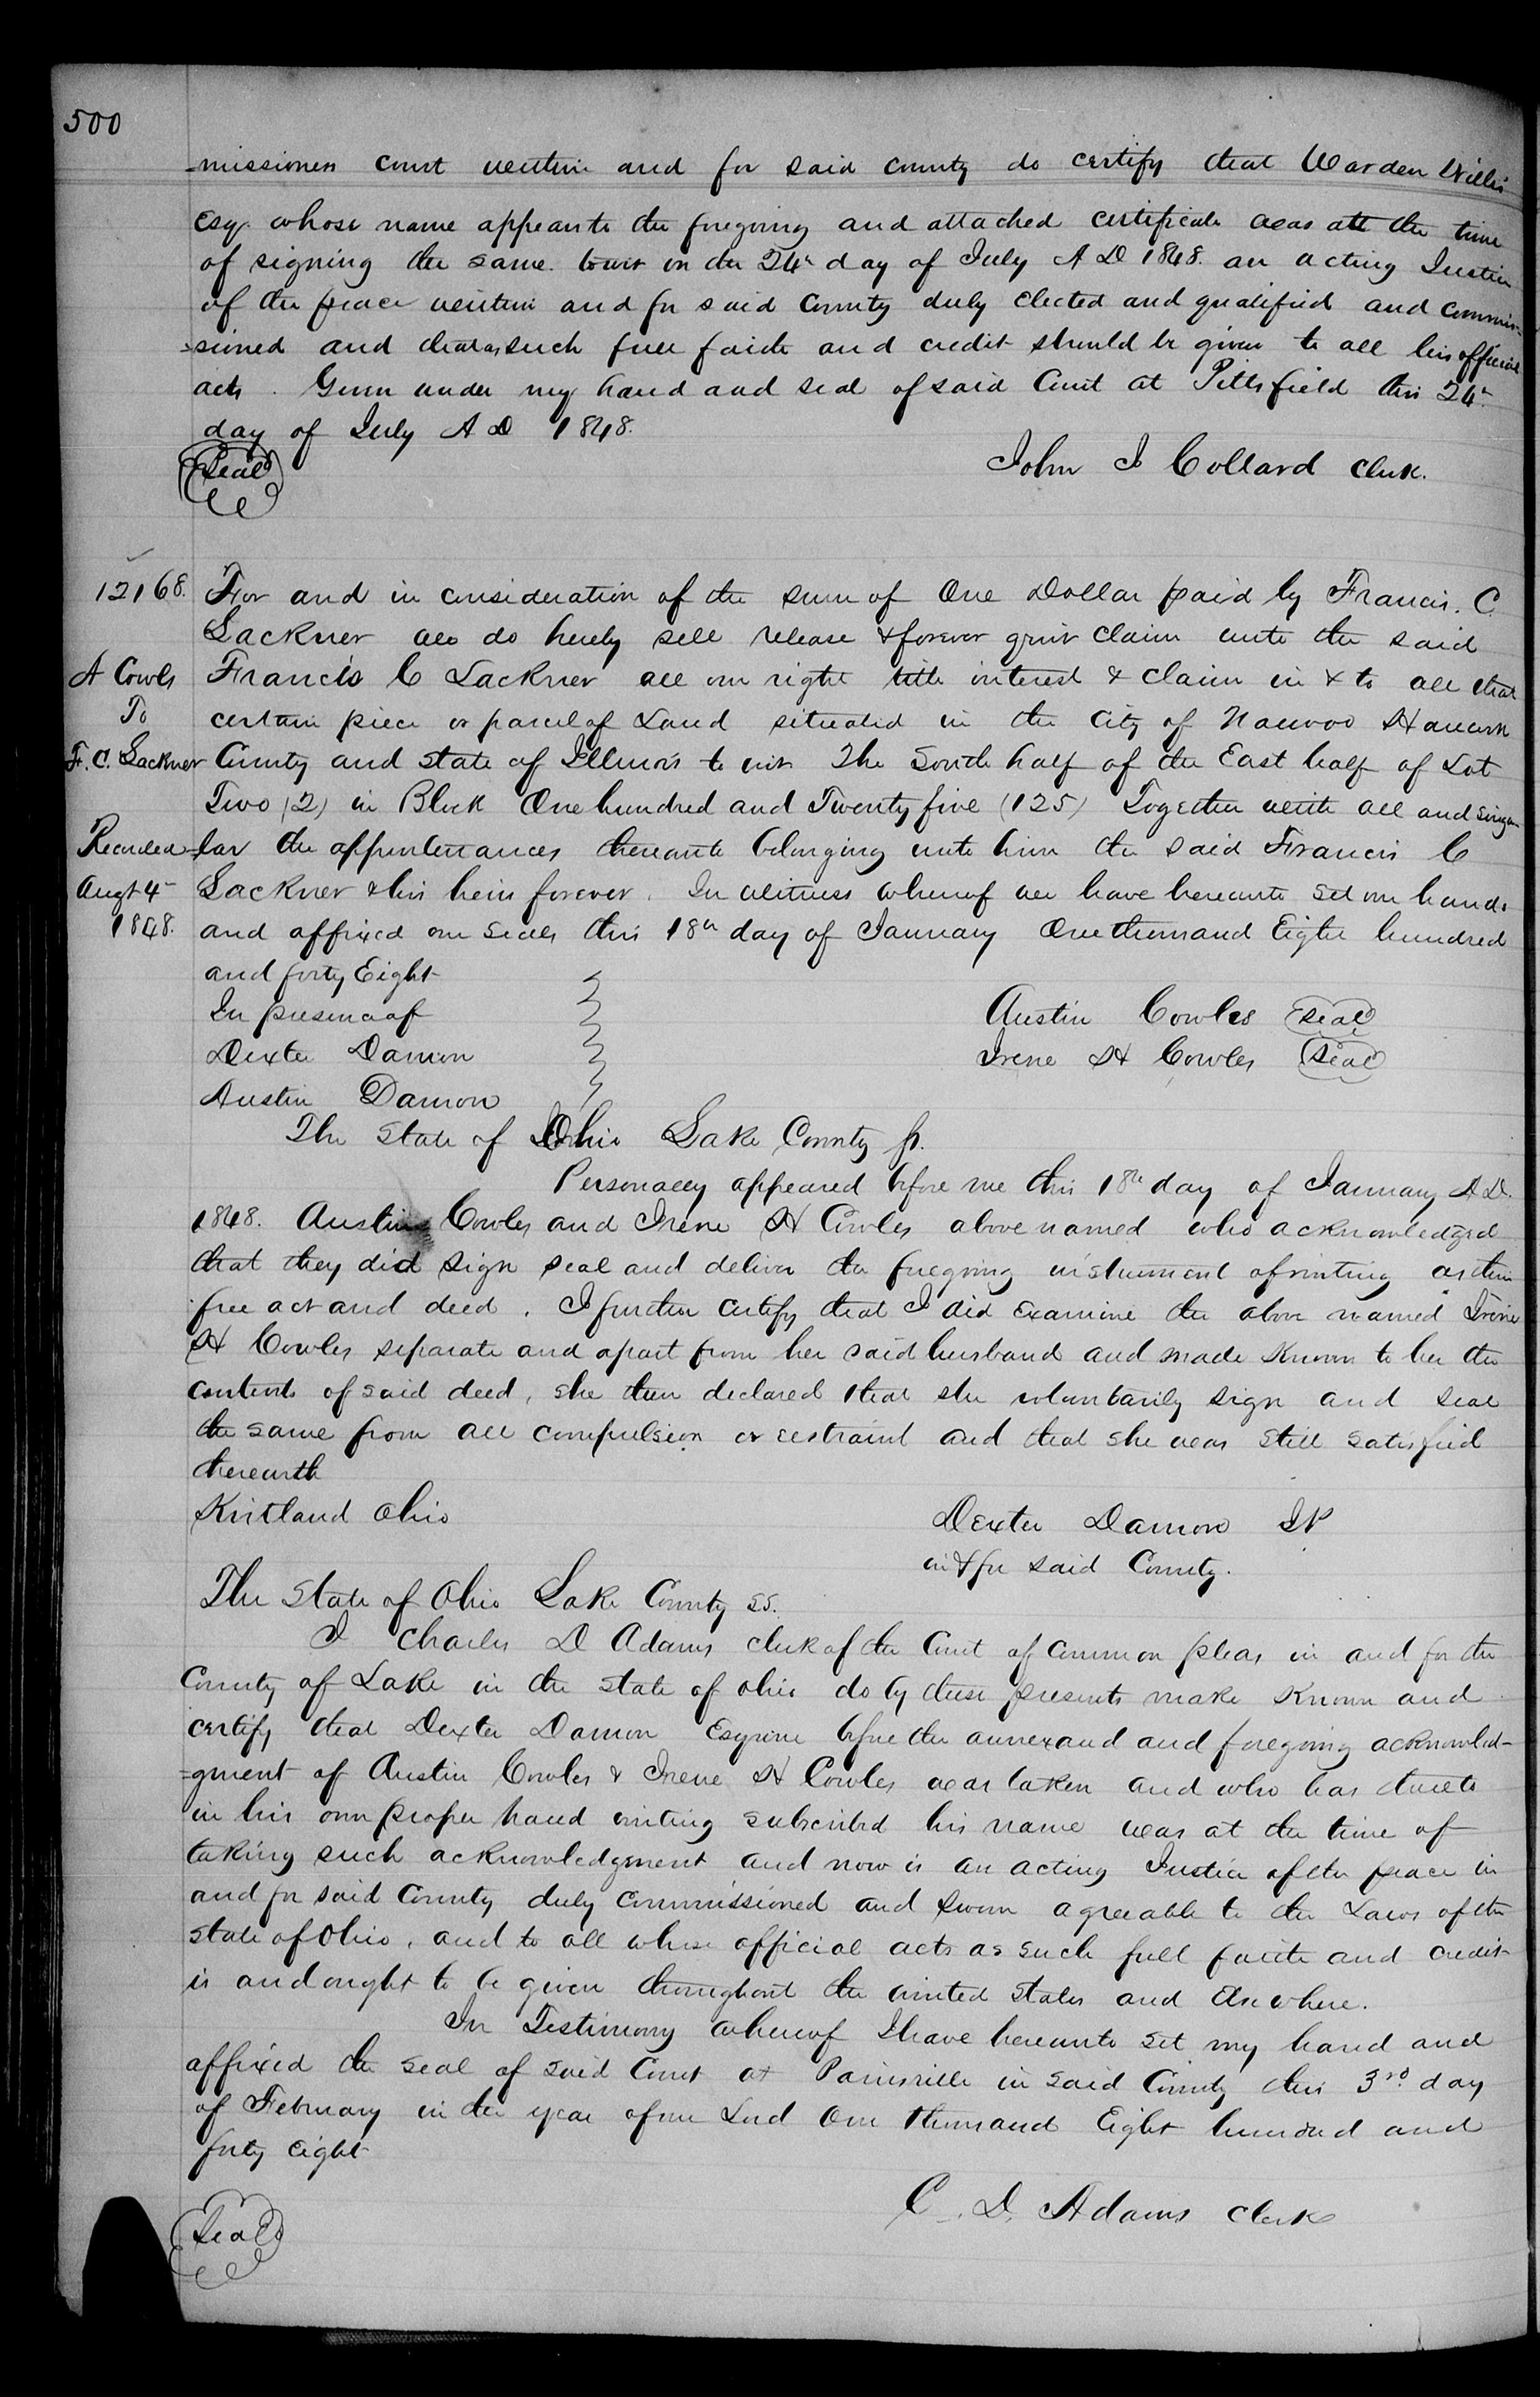 500
-missioners court within and for said county do certify that Warden Willis
Esqr. whose name appears to the foregoing and attached certificate was att the time
of signing the same. towit on the 24th day of July A D 1848. an acting Justice
of the peace within and for said County duly Elected and qualified and commis-
-sioned and that as such full faith and credit should be given to all his official
acts. Given under my hand and seal of said Court at Pittsfield this 24th
day of July A D 1848.
(Seal)
John J Collard Clerk.
12168. For and in consideration of the sum of One Dollar paid by Francis. C.
Lackner we do hereby sell release & forever quit claim unto the said
A Cowles Francis C Lackner all our right title interest & claim in & to all that
To certain piece or parcel of Land situated in the City of Nauvoo Hancock
F. C. Lackner County and state of Illinois to wit The South half of the East half of Lot
Two (2) in Block One hundred and Twenty five (125) Together with all and singu-
Recorded -lar the appurtenances thereunto belonging unto him the said Francis C
Augt 4th Lackner & his heirs forever. In witness whereof we have hereunto set our hands
1848. and affixed our seals this 18th day of January One thousand Eight hundred
and forty Eight
In presence of
Austin Cowles (Seal)
Dexter Damon
Irene H Cowles (Seal)
Austin Damon
The State of Ohio Lake County ss.
Personally appeared before me this 18th day of January A D.
1848. Austin Cowles and Irene H Cowles above named who acknowledged
that they did sign seal and deliver the foregoing instrument of writing as their
free act and deed. I further certify that I did Examine the above named Irene
H Cowles separate and apart from her said husband and made Known to her the
contents of said deed, she then declared that she voluntarily sign and seal
the same from all compulsion or restraint and that she was still satisfied
therewith
Kirtland Ohio
Dexter Damon J P
in & for said County.
The State of Ohio Lake County ss.
I Charles D Adams clerk of the Court of Common pleas in and for the
County of Lake in the state of Ohio do by these presents make Known and
certify that Dexter Damon Esquire before the annexaud and foregoing acknowled-
-gment of Austin Cowles & Irene H Cowles was taken and who has thereto
in his own proper hand writing subscribed his name was at the time of
taking such acknowledgment and now is an acting Justice of the peace in
and for said County duly commissioned and sworn agreeable to the Laws of the
state of Ohio, and to all whose official acts as such full faith and credit
is and ought to be given throughout the united states and Elsewhere.
In Testimony whereof I have hereunto set my hand and
affixed the seal of said Court at Painsville in said County this 3rd day
of February in the year of our Lord One thousand Eight hundred and
forty Eight
C. D. Adams Clerk
(Seal)